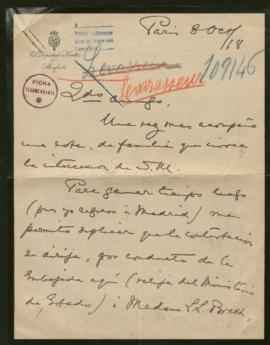 Paris 8 Oct/18
El Diputado a Cortes
Levasseur
Levasseur 109146
FICHA
Qdo amigo,
Una vez mas acompaño
una nota de familia que invoca
la intercesion de S.M.
Para ganar tiempo luego
(pues ya regreso a Madrid) me
permito suplicar que la contestacion
se dirija, por conducto de la
Embajada aquí (valija del Ministerio
de Estado) á Madame L.L.